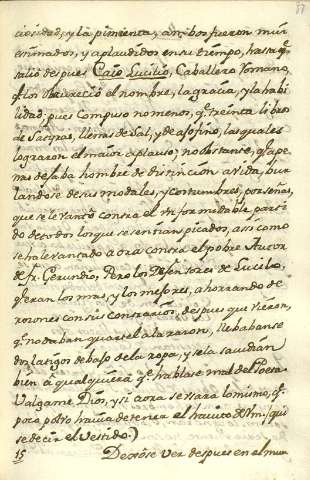 57
ciosidad, y la pimienta, ambos fueron mui
estimados, y aplaudidos en su tiempo, hasta q.e
salio despues Caio Lucilio, Caballero Romano,
q.e les obscureció el nombre, la gracia, y la habi
lidad; pues compuso no menos, q.e treinta libros
de Satiras, llenas de Sal, y de asofino, las quales
lograron el maior aplauso; no obstante, q.e ape
nas dejaba hombre de distinción a vida, bur
landose de sus modales, y costumbres, por señas,
que se levantó contra el vn formidable parti
do de todos los que se sentian picados, asi como
se ha levantado aora contra el pobre Autor
de fr. Gerundio, Pero los Defensores de Lucilo,
q.e eran los mas, y los mejores, ahorrando de
razones con sus contrarios, despues que vieron,
q.e no daban quartel a la razon, llebabanse
dos latigos debajo de la ropa, y se la sacudian
bien a qualquiera q.e hablase mal del Poeta.
Valgame Dios, y si aora se vsara lo mismo, q.e
poco polbo havia de tener el havito de Vm. (qui
se decir el vestido.)
15 Dexóse ver despues en el mun